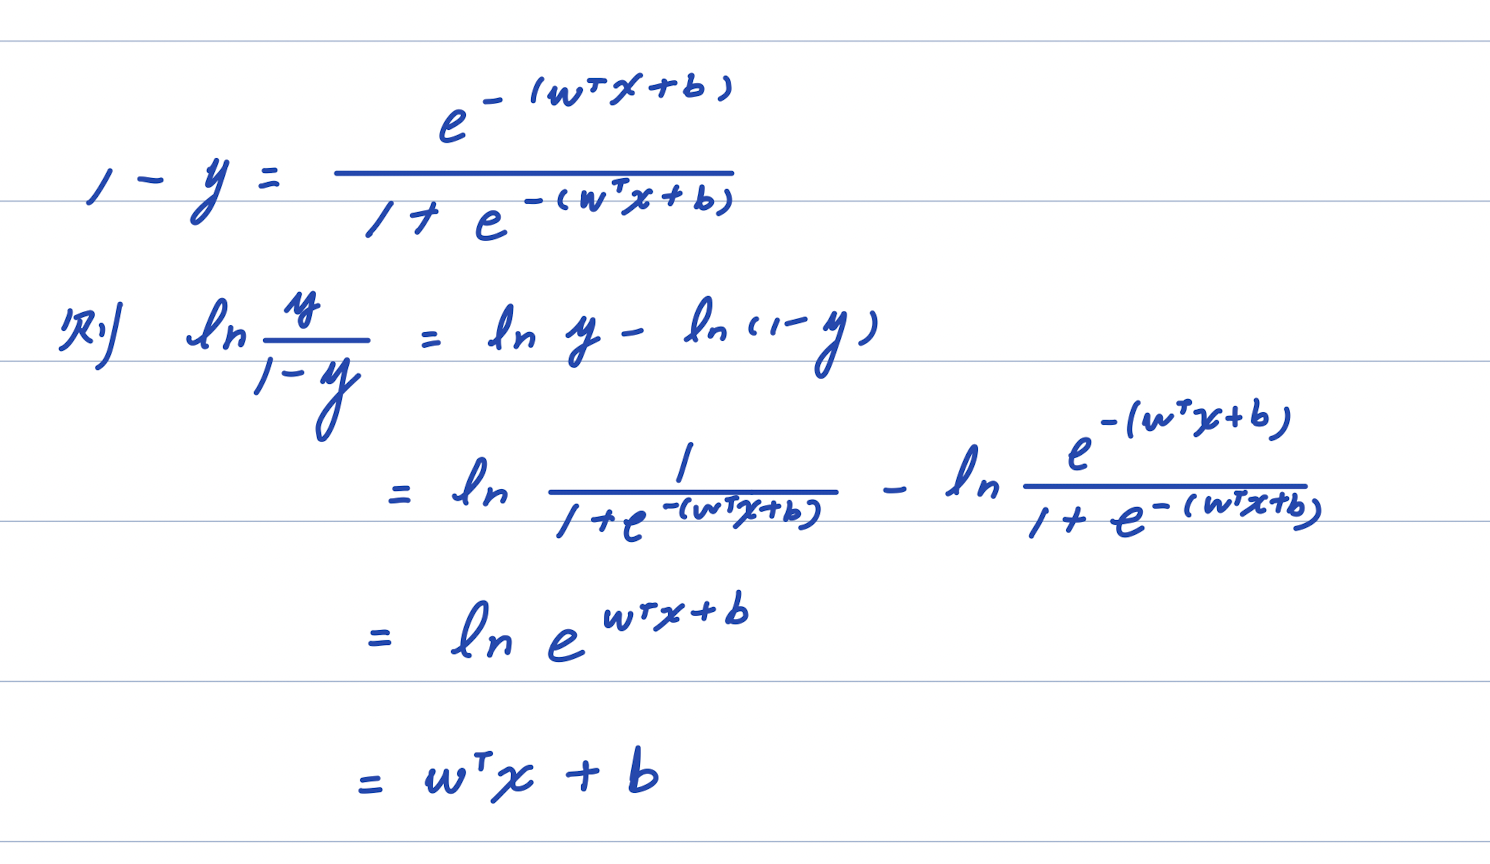 1 - y = \frac{e^{-(w^T x + b)}}{1 + e^{-(w^T x + b)}}
则 ln \frac{y}{1 - y} = ln y - ln (1 - y)
= ln \frac{1}{1 + e^{-(w^T x + b)}} - ln \frac{e^{-(w^T x + b)}}{1 + e^{-(w^T x + b)}}
= ln e^{w^T x + b}
= w^T x + b